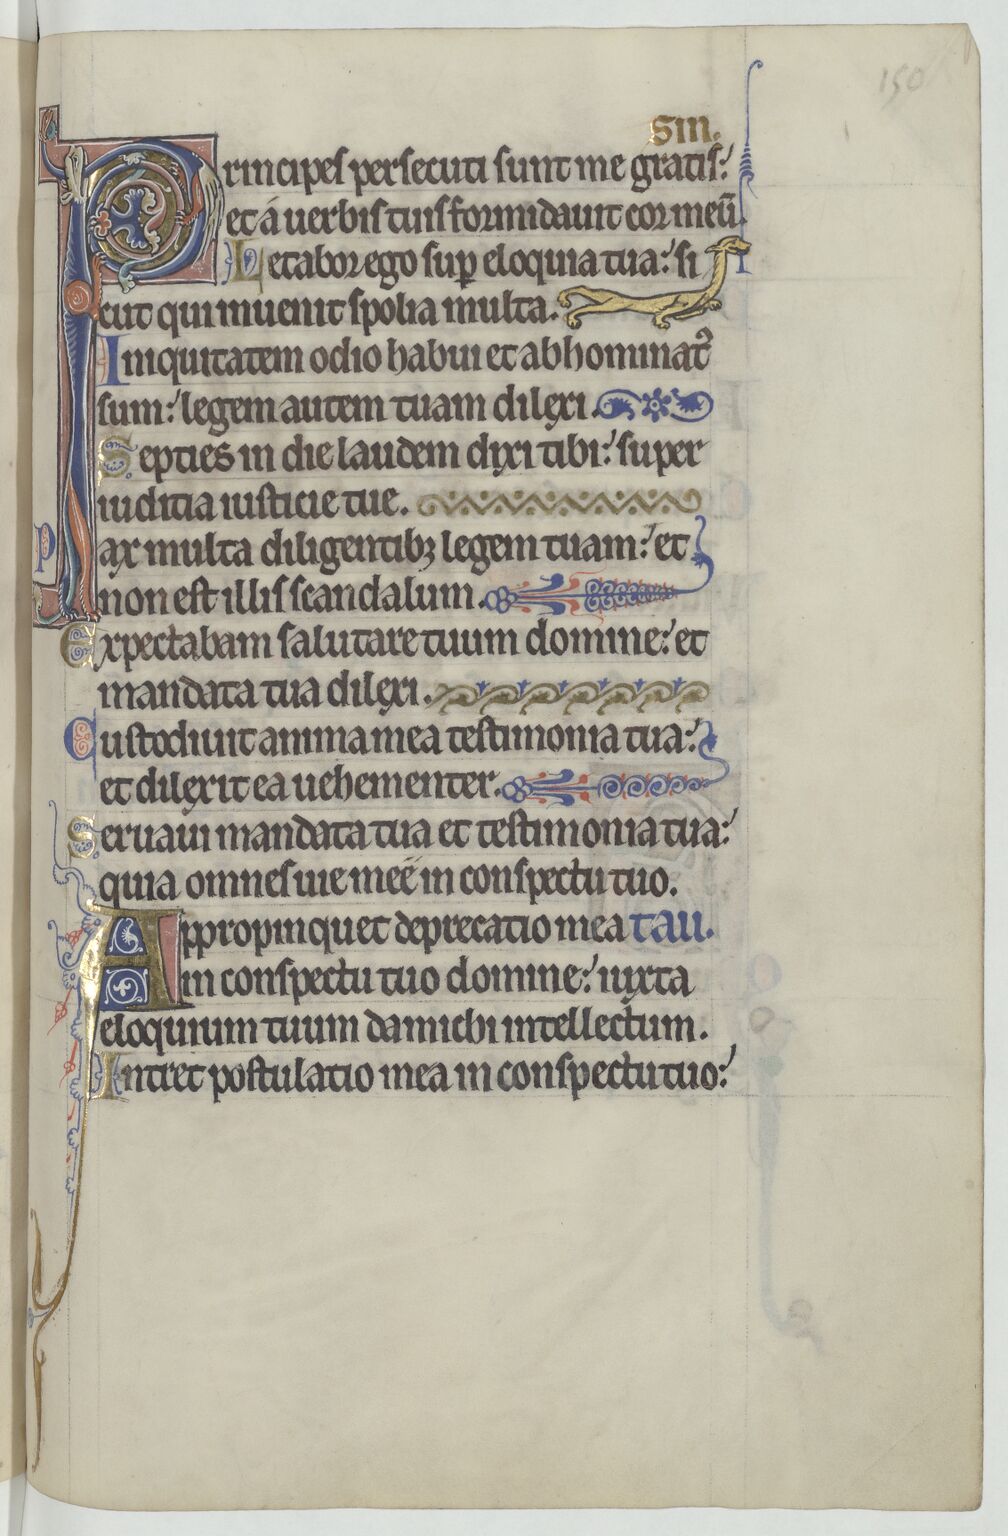 150
Sin.
Principes persecuti sunt me gratis:
et á uerbis tuis formidauit cor meū.
Letabor ego sup eloquia tua: si
cut qui inuenit spolia multa.
Iniquitatem odio habui et abhominat᷒
sum: legem autem tuam dilexi.
Septies in die laudem dixi tibi: super
iudicia iusticie tue.
Pax multa diligentibꝫ legem tuam: et
non est illis scandalum.
Expectabam salutare tuum domine: et
mandata tua dilexi.
Custodiuit anima mea testimonia tua:
et dilexit ea uehementer.
Seruaui mandata tua et testimonia tua:
quia omnes uie meē in conspectu tuo.
Appropinquet deprecatio mea tau.
in conspectu tuo domine: iuxta
eloquium tuum da michi intellectum.
Intret postulatio mea in conspectu tuo: